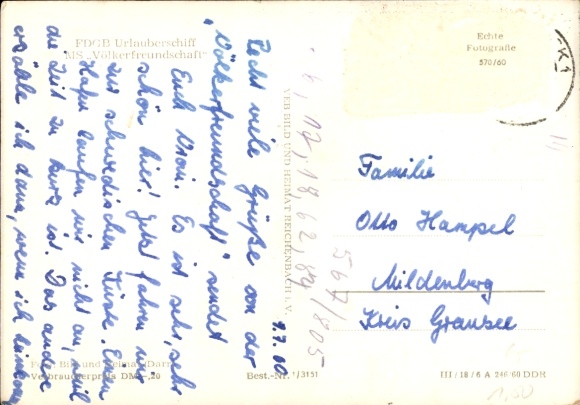 FDGB Urlauberschiff
MS „Völkerfreundschaft"
Echte
Fotografie
570/60
9.7.60
Recht viele Grüße von der
„Völkerfreundschaft" sendet
Euch Es ist sehr, sehr
schön hier! Jetzt fahren wir
zur schwedischen Küste. Einen
Hafen laufen wir nicht an, weil
die Zeit zu kurz ist. Das andere
erzähle ich dann, wenn ich
VEB BILD UND HEIMAT REICHENBACH i. V.
17, 18, 62, 89/805
567
Familie
Otto Hampel
Mildenberg
Kreis Gransee
Foto: Bild und Heimat
Verbraucherpreis DM –,20
Best.-Nr. 7/3151
III/18/6 A 246/60 DDR